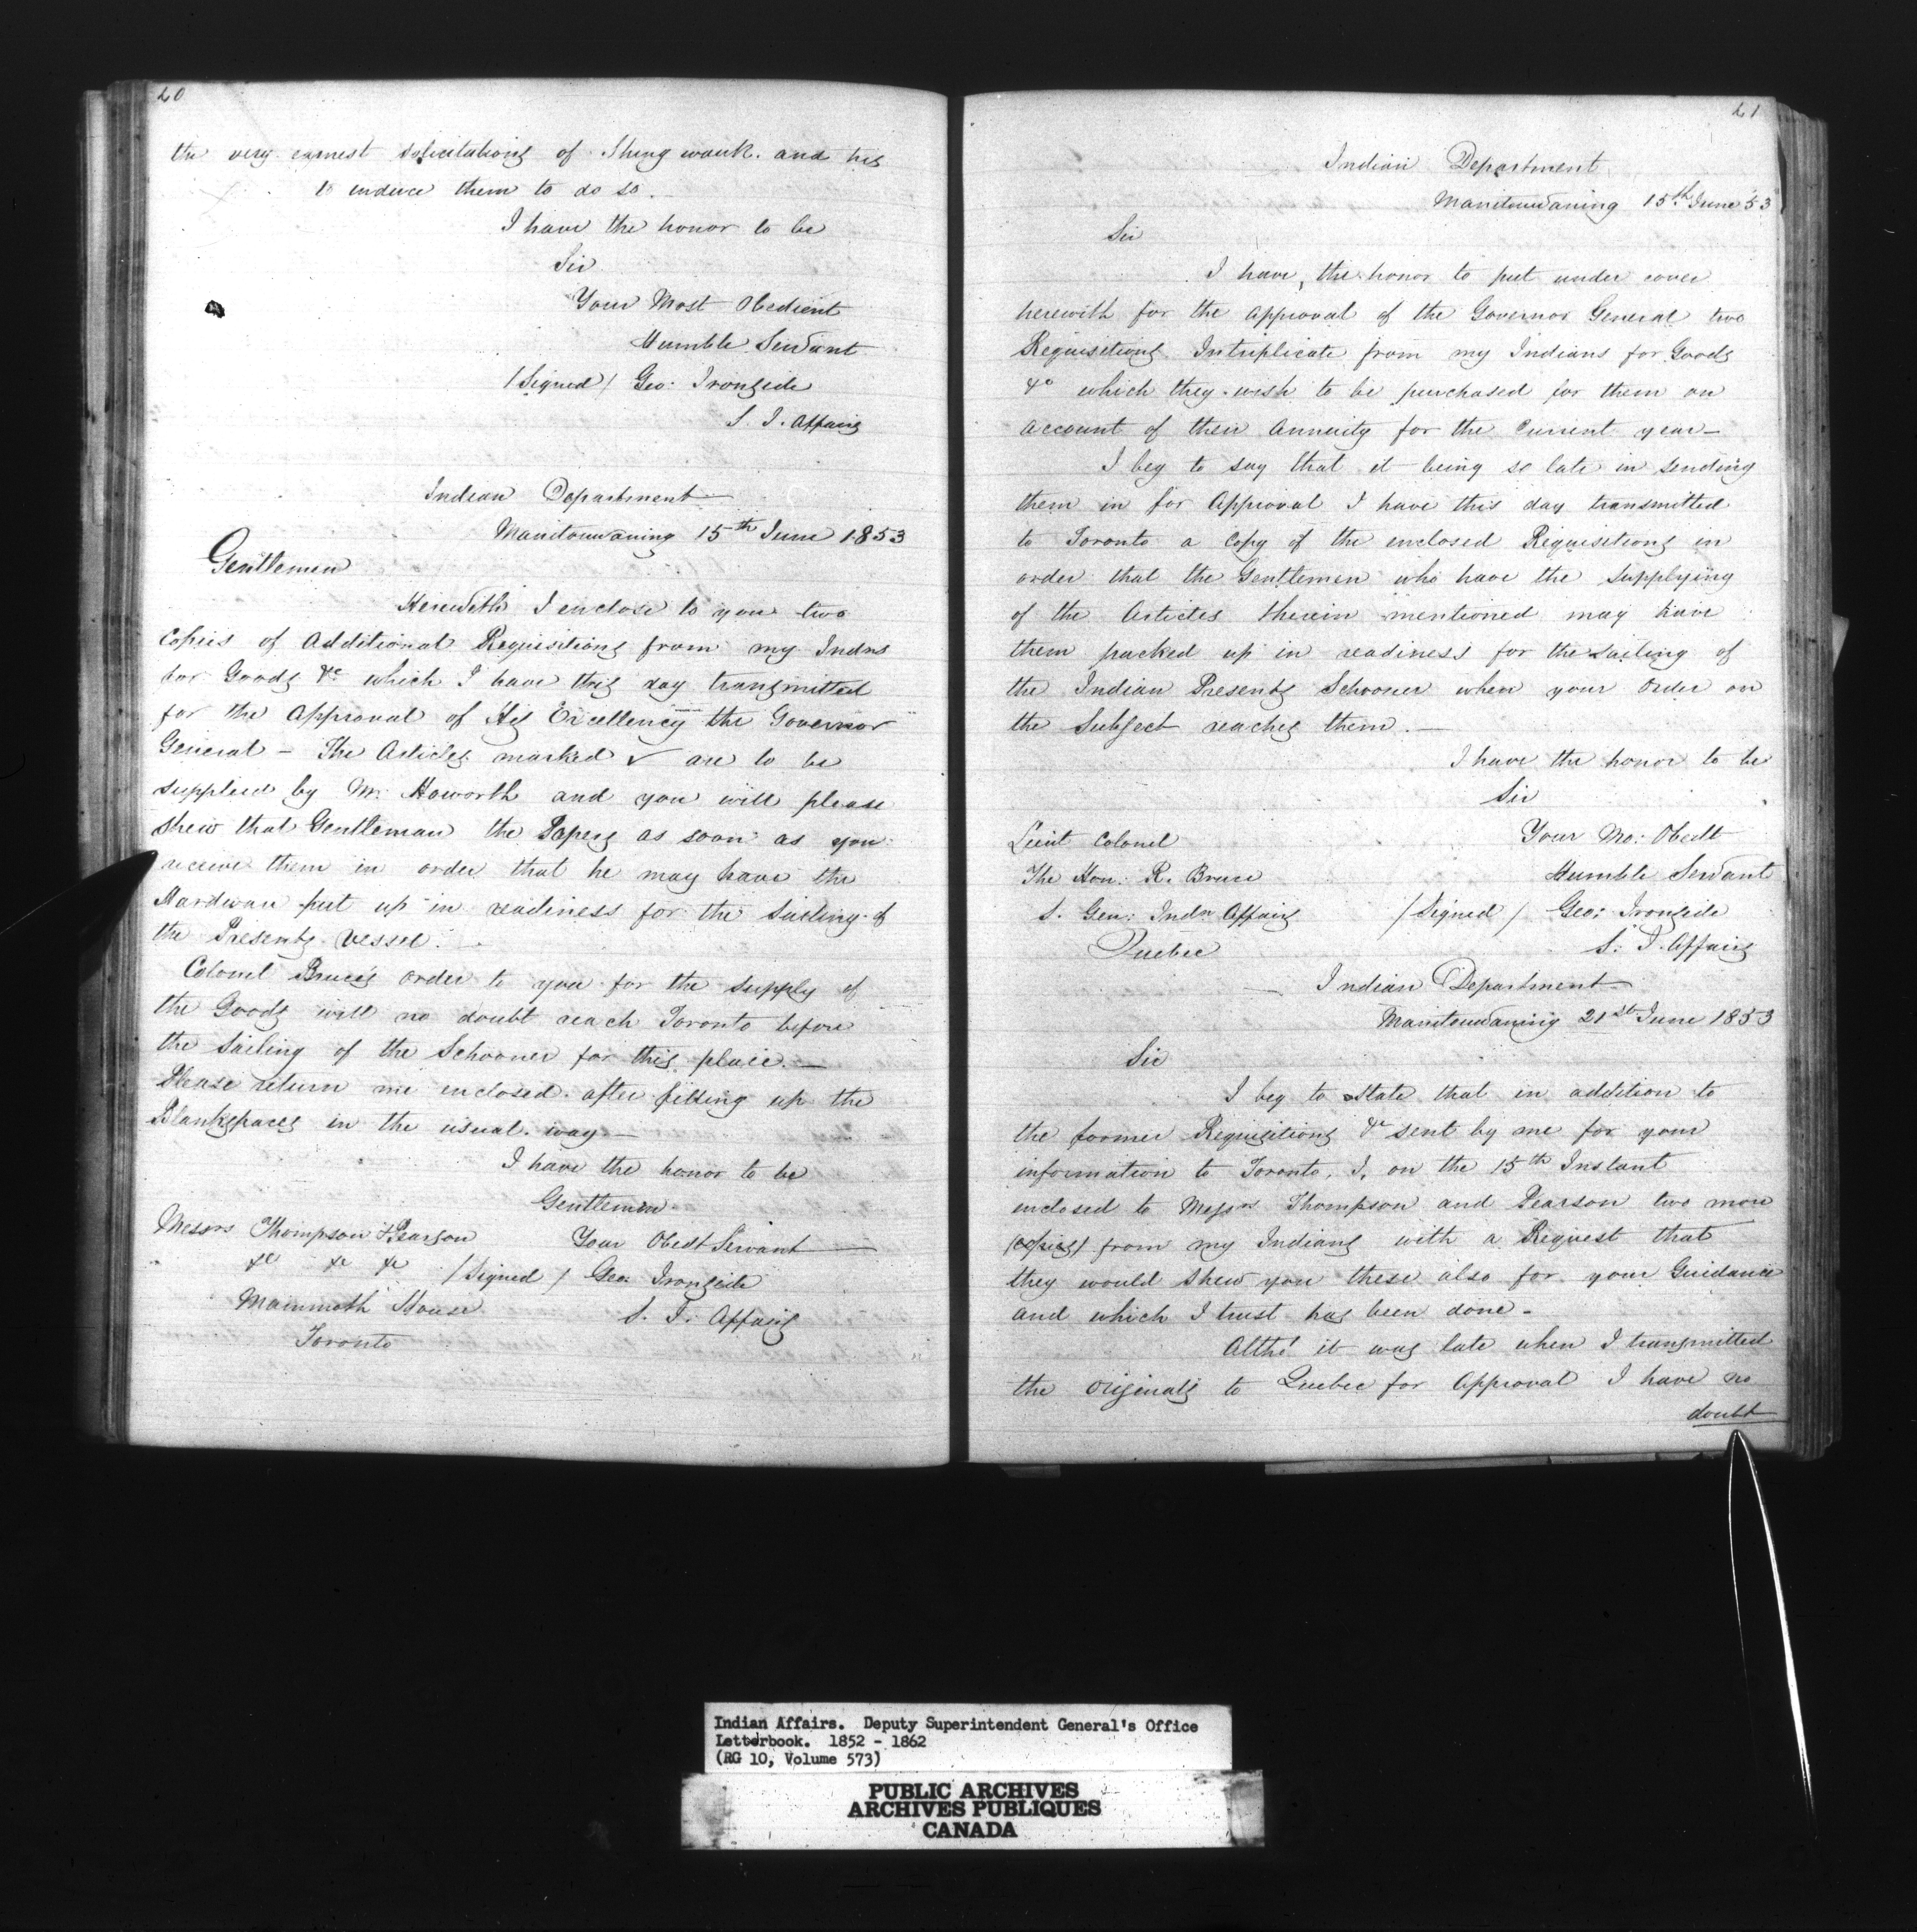 20
the very earnest solicitations of Shing wauk. and his
to induce them to do so.
I have the honor to be
Sir
Your Most Obedient
Humble Servant
/Signed/ Geo: Ironside
S. I. Affairs
Indian Department
Manitouwaning 15th June 1853
Gentlemen
Herewith I enclose to you two
Copies of Additional Requisitions from my Indns
for Goods &c which I have this day transmitted
for the Approval of His Excellency the Governor
General – The Articles marked ✓ are to be
supplied by Mr. Haworth and you will please
shew that Gentleman the Papers as soon as you
receive them in order that he may have the
Hardware put up in readiness for the Sailing of
the Presents Vessel.
Colonel Bruce's order to you for the supply of
the Goods will no doubt reach Toronto before
the Sailing of the Schooner for this place. —
Please return me enclosed after filling up the
Blankspaces in the usual way —
I have the honor to be
Gentlemen
Messrs Thompson & Pearson
Your Obedt Servant
&c &c &c /Signed/ Geo: Ironside
Mammoth House
S. I. Affairs
Toronto
21
Indian Department
Manitouwaning 15th June 53
Sir
I have, the honor to put under cover
herewith for the Approval of the Governor General two
Requisitions Intriplicate from my Indians for Goods
&c which they wish to be purchased for them on
account of their Annuity for the Current year —
I beg to say that it being so late in sending
them in for Approval I have this day transmitted
to Toronto a Copy of the enclosed Requisitions in
order that the Gentlemen who have the supplying
of the Articles therein mentioned may have
them packed up in readiness for the sailing of
the Indian Presents Schooner when your order on
the Subject reaches them. —
I have the honor to be
Sir
Lieut Colonel
Your Mo: Obedt
The Hon: R. Bruce
Humble Servant
S. Gen: Indn Affairs
/Signed/ Geo: Ironside
Quebec
S. I. Affairs
Indian Department
Manitouwaning 21st June 1853
Sir
I beg to State that in addition to
the former Requisitions &c sent by me for your
information to Toronto, I, on the 15th Instant
enclosed to Messrs Thompson and Pearson two more
(copies) from my Indians with a Request that
they would shew you these also for your Guidance
and which I trust has been done –
Altho' it was late when I transmitted
the originals to Quebec for Approval I have no
doubt
Indian Affairs. Deputy Superintendent General's Office
Letterbook. 1852 - 1862
(RG 10, Volume 573)
PUBLIC ARCHIVES
ARCHIVES PUBLIQUES
CANADA